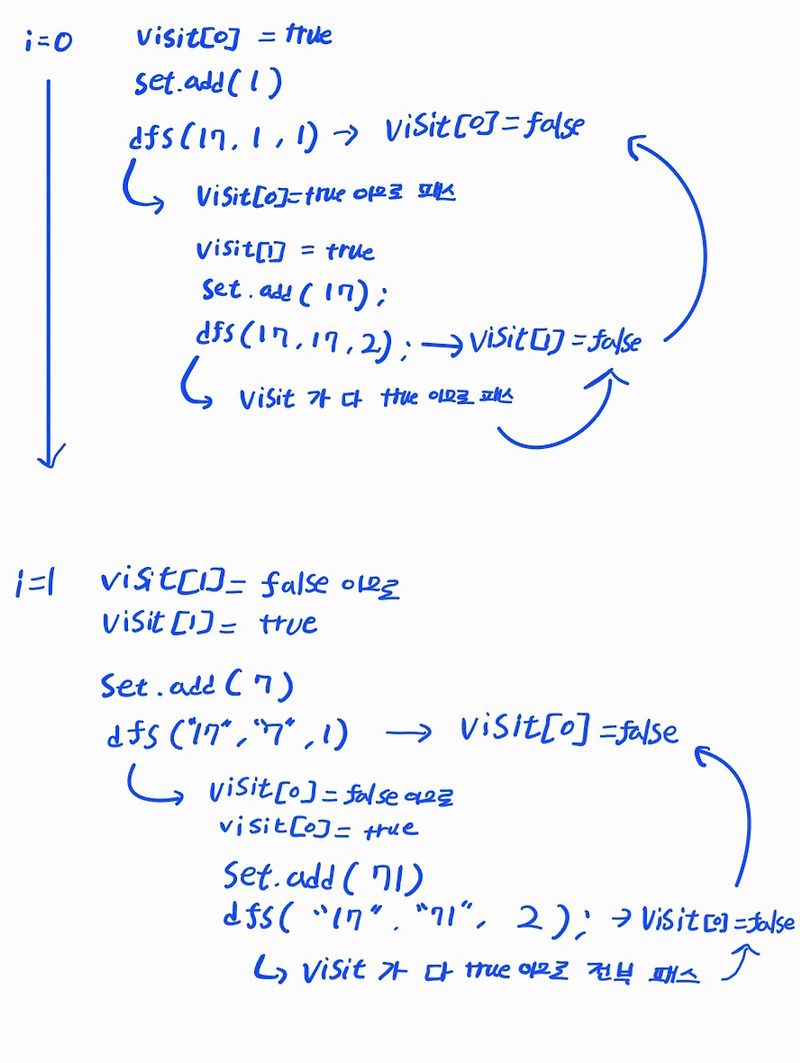 i=0 visit[0] = true
set.add(1)
dfs(17, 1, 1) → visit[0]=false
↳ visit[0]=true 이므로 패스
visit[1] = true
set.add(17);
dfs(17, 17, 2); → visit[1]=false
↳ visit 가 다 true 이므로 패스
i=1 visit[1]= false 이므로
visit[1]= true
set.add(7)
dfs("17","7",1) → visit[0]=false
↳ visit[0]=false이므로
visit[0]= true
set.add(71)
dfs("17". "71", 2); → visit[0]=false
↳ visit 가 다 true 이므로 전부 패스